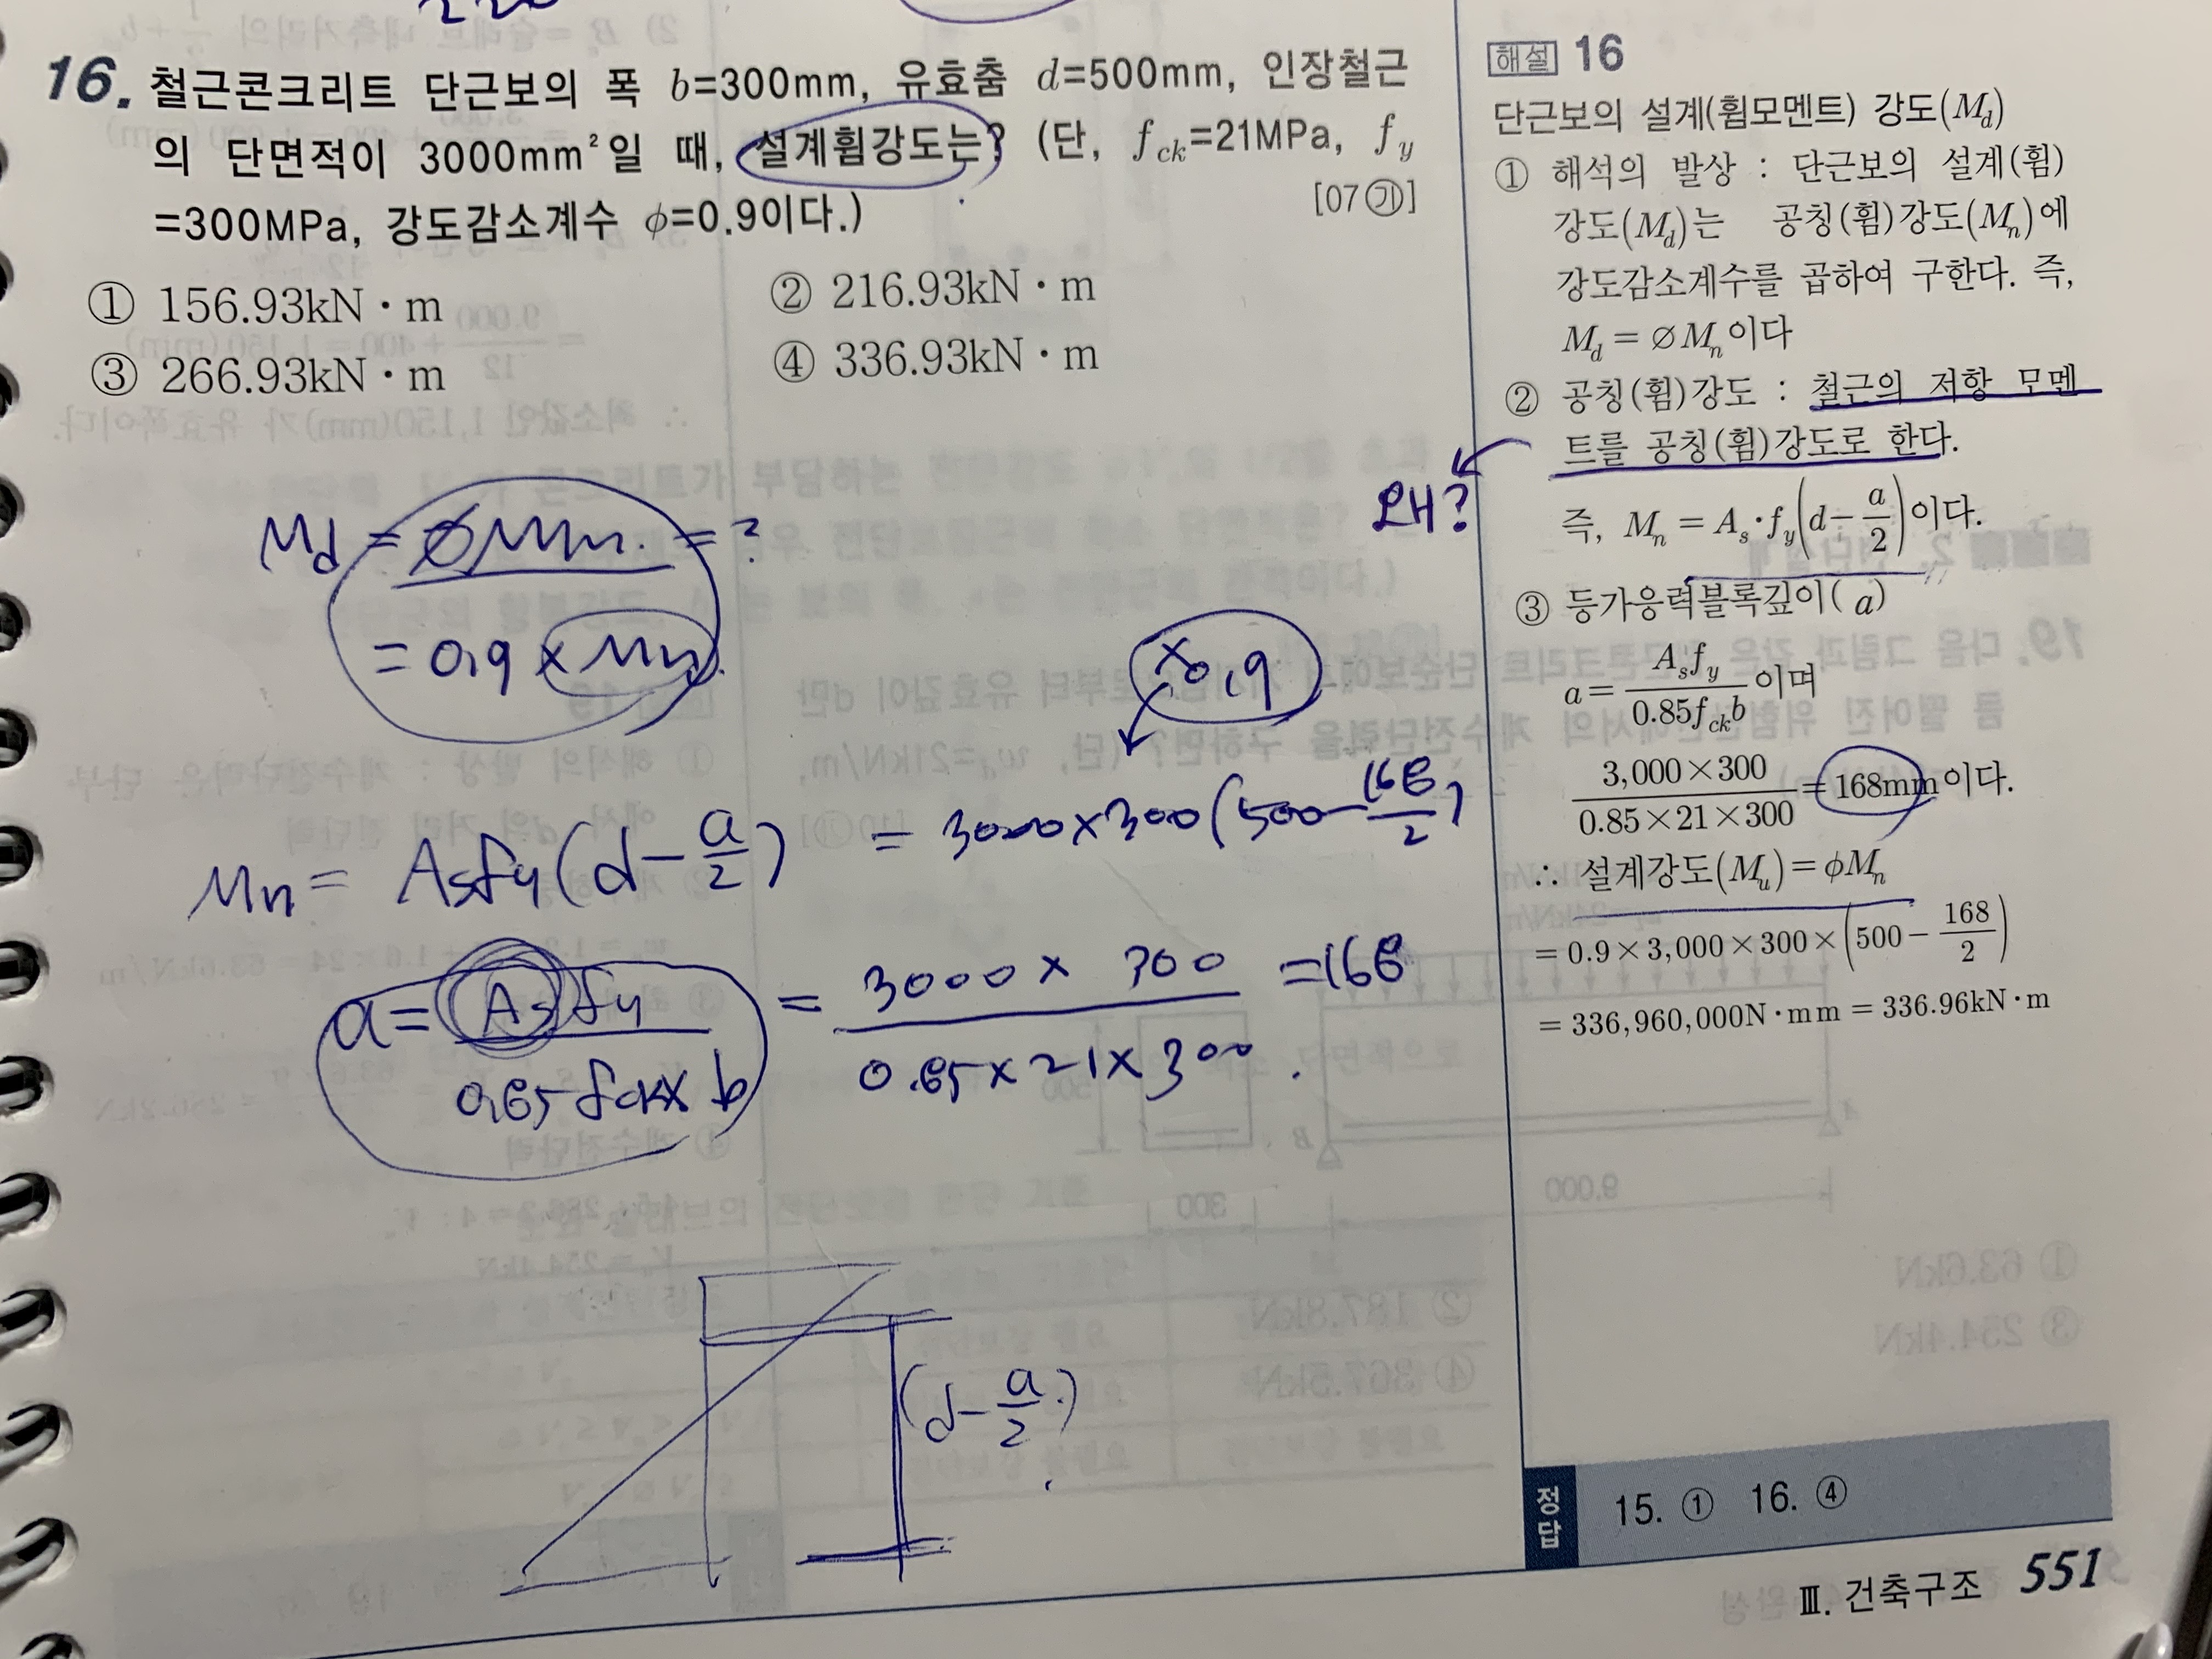 16. 철근콘크리트 단근보의 폭 b=300mm, 유효춤 d=500mm, 인장철근
의 단면적이 3000mm²일 때, 설계휨강도는? (단, f_ck=21MPa, f_y
=300MPa, 강도감소계수 ϕ=0.9이다.) [07㉮]
① 156.93kN·m ② 216.93kN·m
③ 266.93kN·m ④ 336.93kN·m
Md = ∅Mn. = ?
= 0.9 × Mn.
×0.9
Mn = Asfy(d - a/2) = 3000×300(500 - 168/2)
a = Asfy / 0.85fck×b = 3000 × 300 / 0.85×21×300 = 168
(d - a/2)
해설 16
단근보의 설계(휨모멘트) 강도(M_d)
① 해석의 발상 : 단근보의 설계(휨)
강도(M_d)는 공칭(휨)강도(M_n)에
강도감소계수를 곱하여 구한다. 즉,
M_d = ∅M_n이다
② 공칭(휨)강도 : 철근의 저항 모멘
트를 공칭(휨)강도로 한다.
왜?
즉, M_n = A_s·f_y(d - a/2)이다.
③ 등가응력블록깊이(a)
a = A_s f_y / 0.85f_ck b 이며
3,000×300 / 0.85×21×300 = 168mm이다.
∴ 설계강도(M_u) = ϕM_n
= 0.9×3,000×300×(500 - 168/2)
= 336,960,000N·mm = 336.96kN·m
정답 15. ① 16. ④
Ⅲ. 건축구조 551